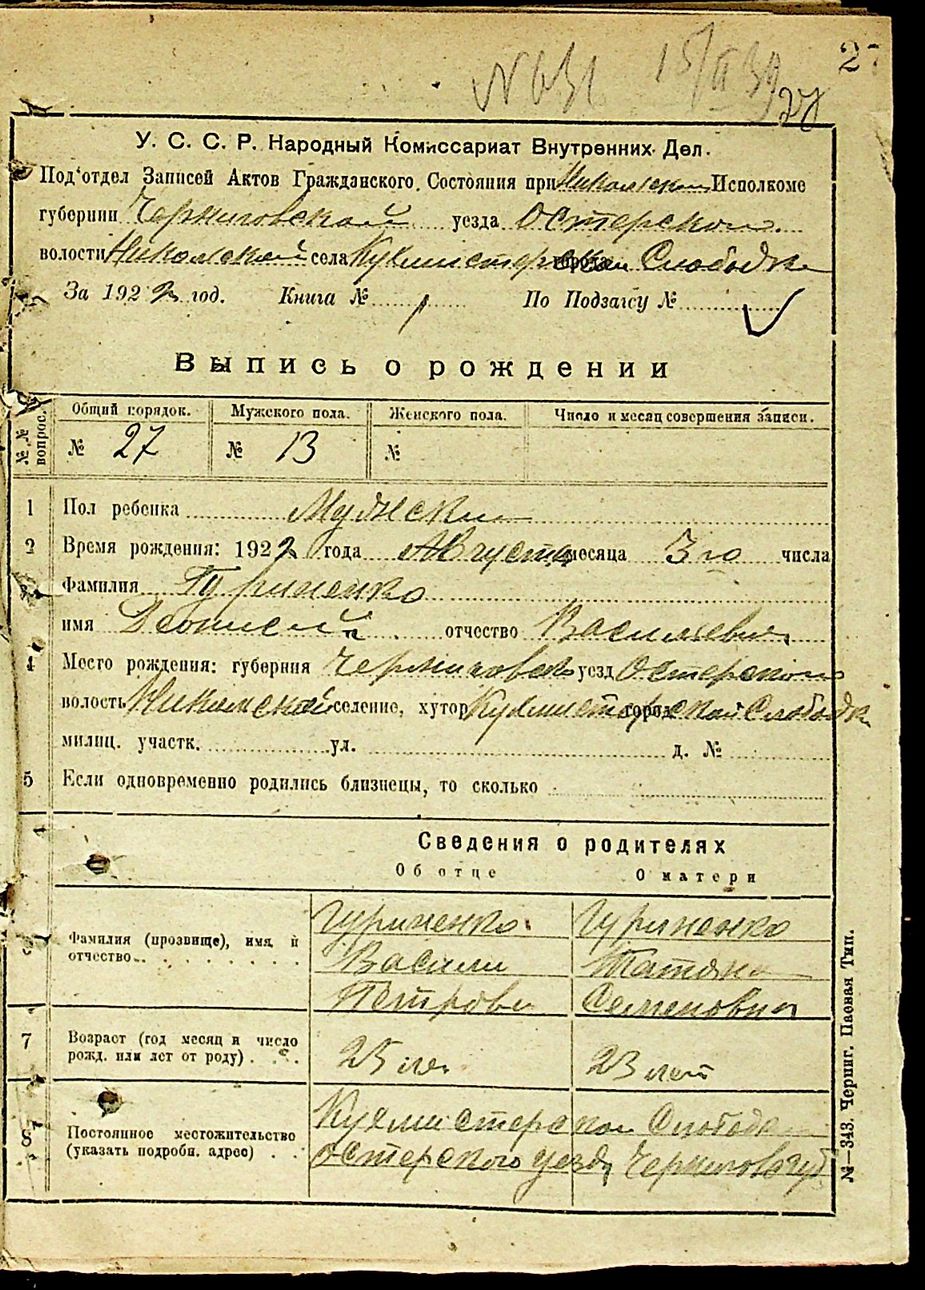 № 631 15/II 39 27
27
У. С. С. Р. Народный Комиссариат Внутренних Дел.
Под'отдел Записей Актов Гражданского Состояния при Никольским Исполкоме
губернии Черниговской уезда Остерском
волости Никольской села Кухмистерской города Слободки
За 1922 год. Книга № 1 По Подзагсу №
Выпись о рождении
№№ вопрос. Общий порядок. Мужского пола. Женского пола. Число и месяц совершения записи.
№ 27 № 13 №
1 Пол ребенка Мужской
2 Время рождения: 1922 года Августа месяца 3го числа
Фамилия Гуриненко
имя отчество Васильевич
4 Место рождения: губерния Черниговской уезд Остерском
волость Никольской селение, хутор Кухмистерской город Слободки
милиц. участк. ул. д. №
5 Если одновременно родились близнецы, то сколько
Сведения о родителях
Об отце О матери
Гуриненко Гуриненко
Фамилия (прозвище), имя и
отчество Василий Татяна
Петрович Семеновна
7 Возраст (год месяц и число
рожд. или лет от роду) 25 лет 23 лет
Кухмистерской Слободки
8 Постоянное местожительство
(указать подробн. адрес) Остерского уезда Чернигов губ
№—343. Черниг. Паевая Тип.